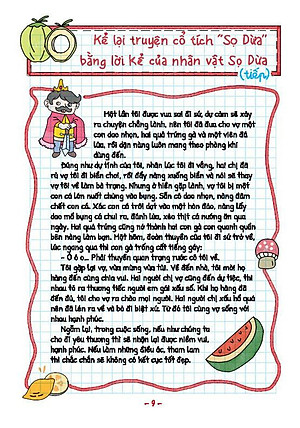 Kể lại truyện cổ tích "Sọ Dừa"
bằng lời kể của nhân vật Sọ Dừa
(tiếp)
Một lần tôi được vua sai đi sứ, dự cảm sẽ xảy
ra chuyện chẳng lành, nên tôi đã đưa cho vợ một
con dao nhọn, hai quả trứng gà và một viên đá
lửa, rồi dặn nàng luôn mang theo phòng khi
dùng đến.
Đúng như dự tính của tôi, nhân lúc tôi đi vắng, hai chị đã
rủ vợ tôi đi biển chơi, rồi đẩy nàng xuống biển và nói sẽ thay
vợ tôi về làm bà trạng. Nhưng ở hiền gặp lành, vợ tôi bị một
con cá lớn nuốt chửng vào bụng. Sẵn có dao nhọn, nàng đâm
chết con cá. Xác con cá trôi dạt vào một hòn đảo, nàng lấy
dao mổ bụng cá chui ra, đánh lửa, xẻo thịt cá nướng ăn qua
ngày. Hai quả trứng cũng nở thành hai con gà con quanh quẩn
bên nàng làm bạn. Một hôm, đoàn thuyền của tôi đi sứ trở về,
lúc ngang qua thì con gà trống cất tiếng gáy:
- Ò ó o... Phải thuyền quan trạng rước cô tôi về.
Tôi gặp lại vợ, vừa mừng vừa tủi. Về đến nhà, tôi mời họ
hàng đến cùng chia vui. Hai người chị vợ cũng đến dự tiệc, thi
nhau tỏ ra thương tiếc người em gái xấu số. Khi họ hàng đã
đến đủ, tôi cho vợ ra chào mọi người. Hai người chị xấu hổ quá
nên đã lẻn ra về và bỏ đi biệt xứ. Từ đó tôi cùng vợ sống với
nhau hạnh phúc.
Ngẫm lại, trong cuộc sống, nếu như chúng ta
cho đi yêu thương thì sẽ nhận lại được niềm vui,
hạnh phúc. Nếu làm những điều ác, tham lam
thì chắc chắn sẽ không có kết cục tốt đẹp.
- 9 -